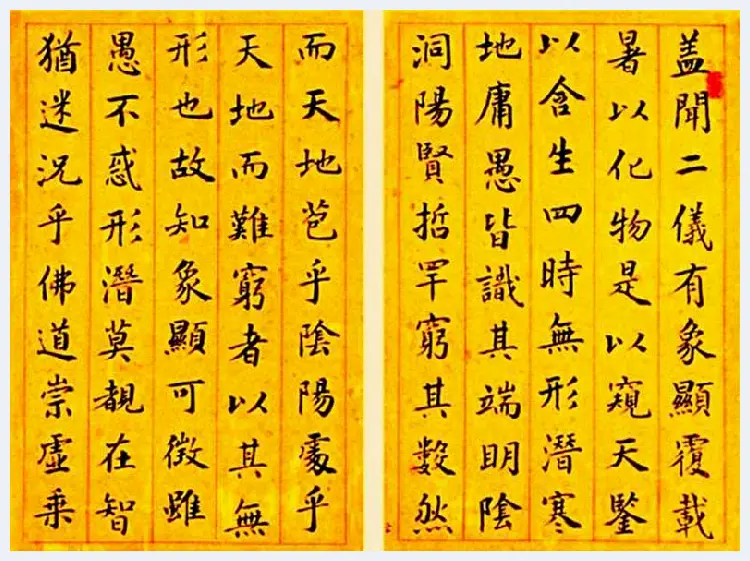 盖聞二儀有象顯覆載
暑以化物是以窺天鑒
以含生四時無形潛寒
地庸愚皆識其端明陰
洞陽賢哲罕窮其數然
而天地苞乎陰陽處乎
天地而難窮者以其無
形也故知象顯可徵雖
愚不惑形潛莫覩在智
猶迷況乎佛道崇虛乗